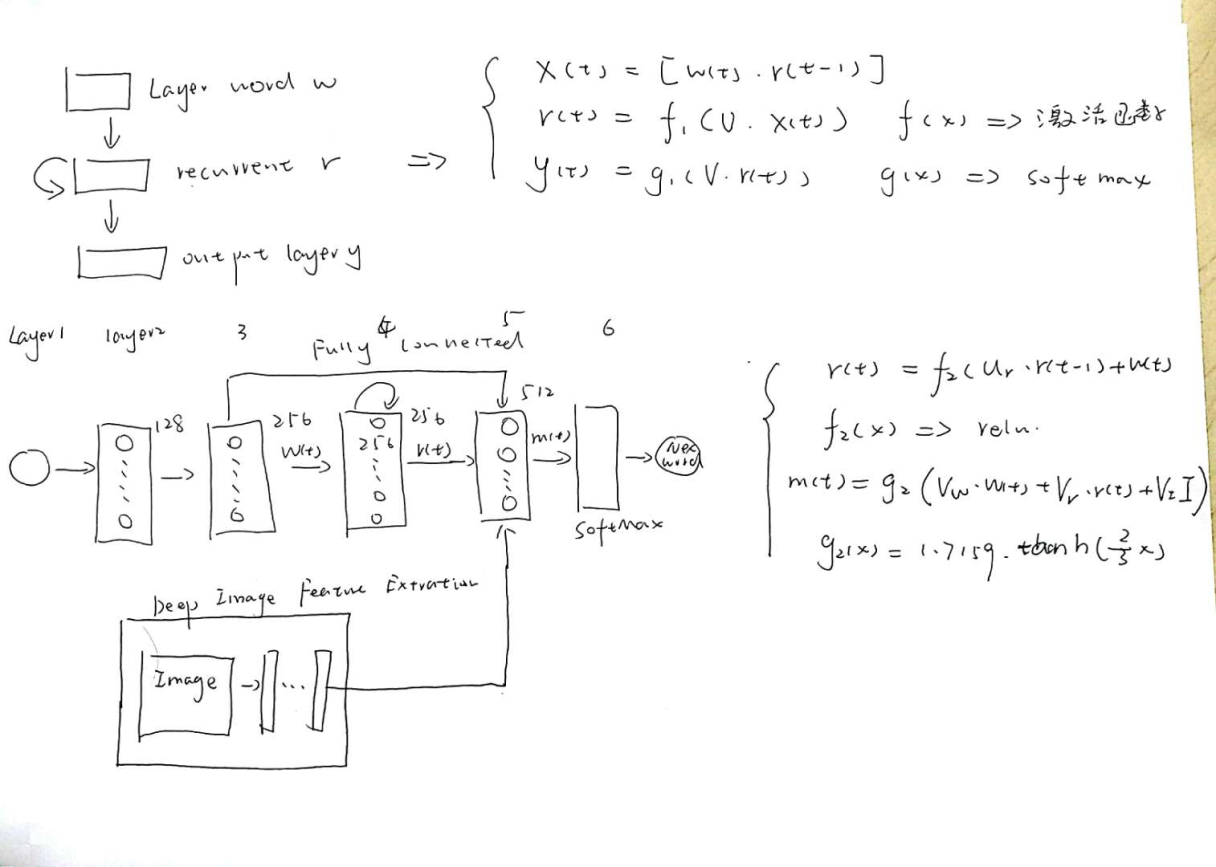 Layer word w
recurrent r
output layer y
=>
x(t) = [w(t) · r(t-1)]
r(t) = f₁(U · x(t)) f(x) => 激活函数
y(t) = g₁(V · r(t)) g(x) => softmax
Layer1 layer2 3 4 5 6
Fully connected
128 256 256 256 512
w(t) r(t) m(t)
Nex word
SoftMax
Deep Image Feature Extration
Image
r(t) = f₂(Ur · r(t-1) + w(t))
f₂(x) => relu.
m(t) = g₂(Vw · w(t) + Vr · r(t) + VI I)
g₂(x) = 1.7159 · tanh(2/3 x)